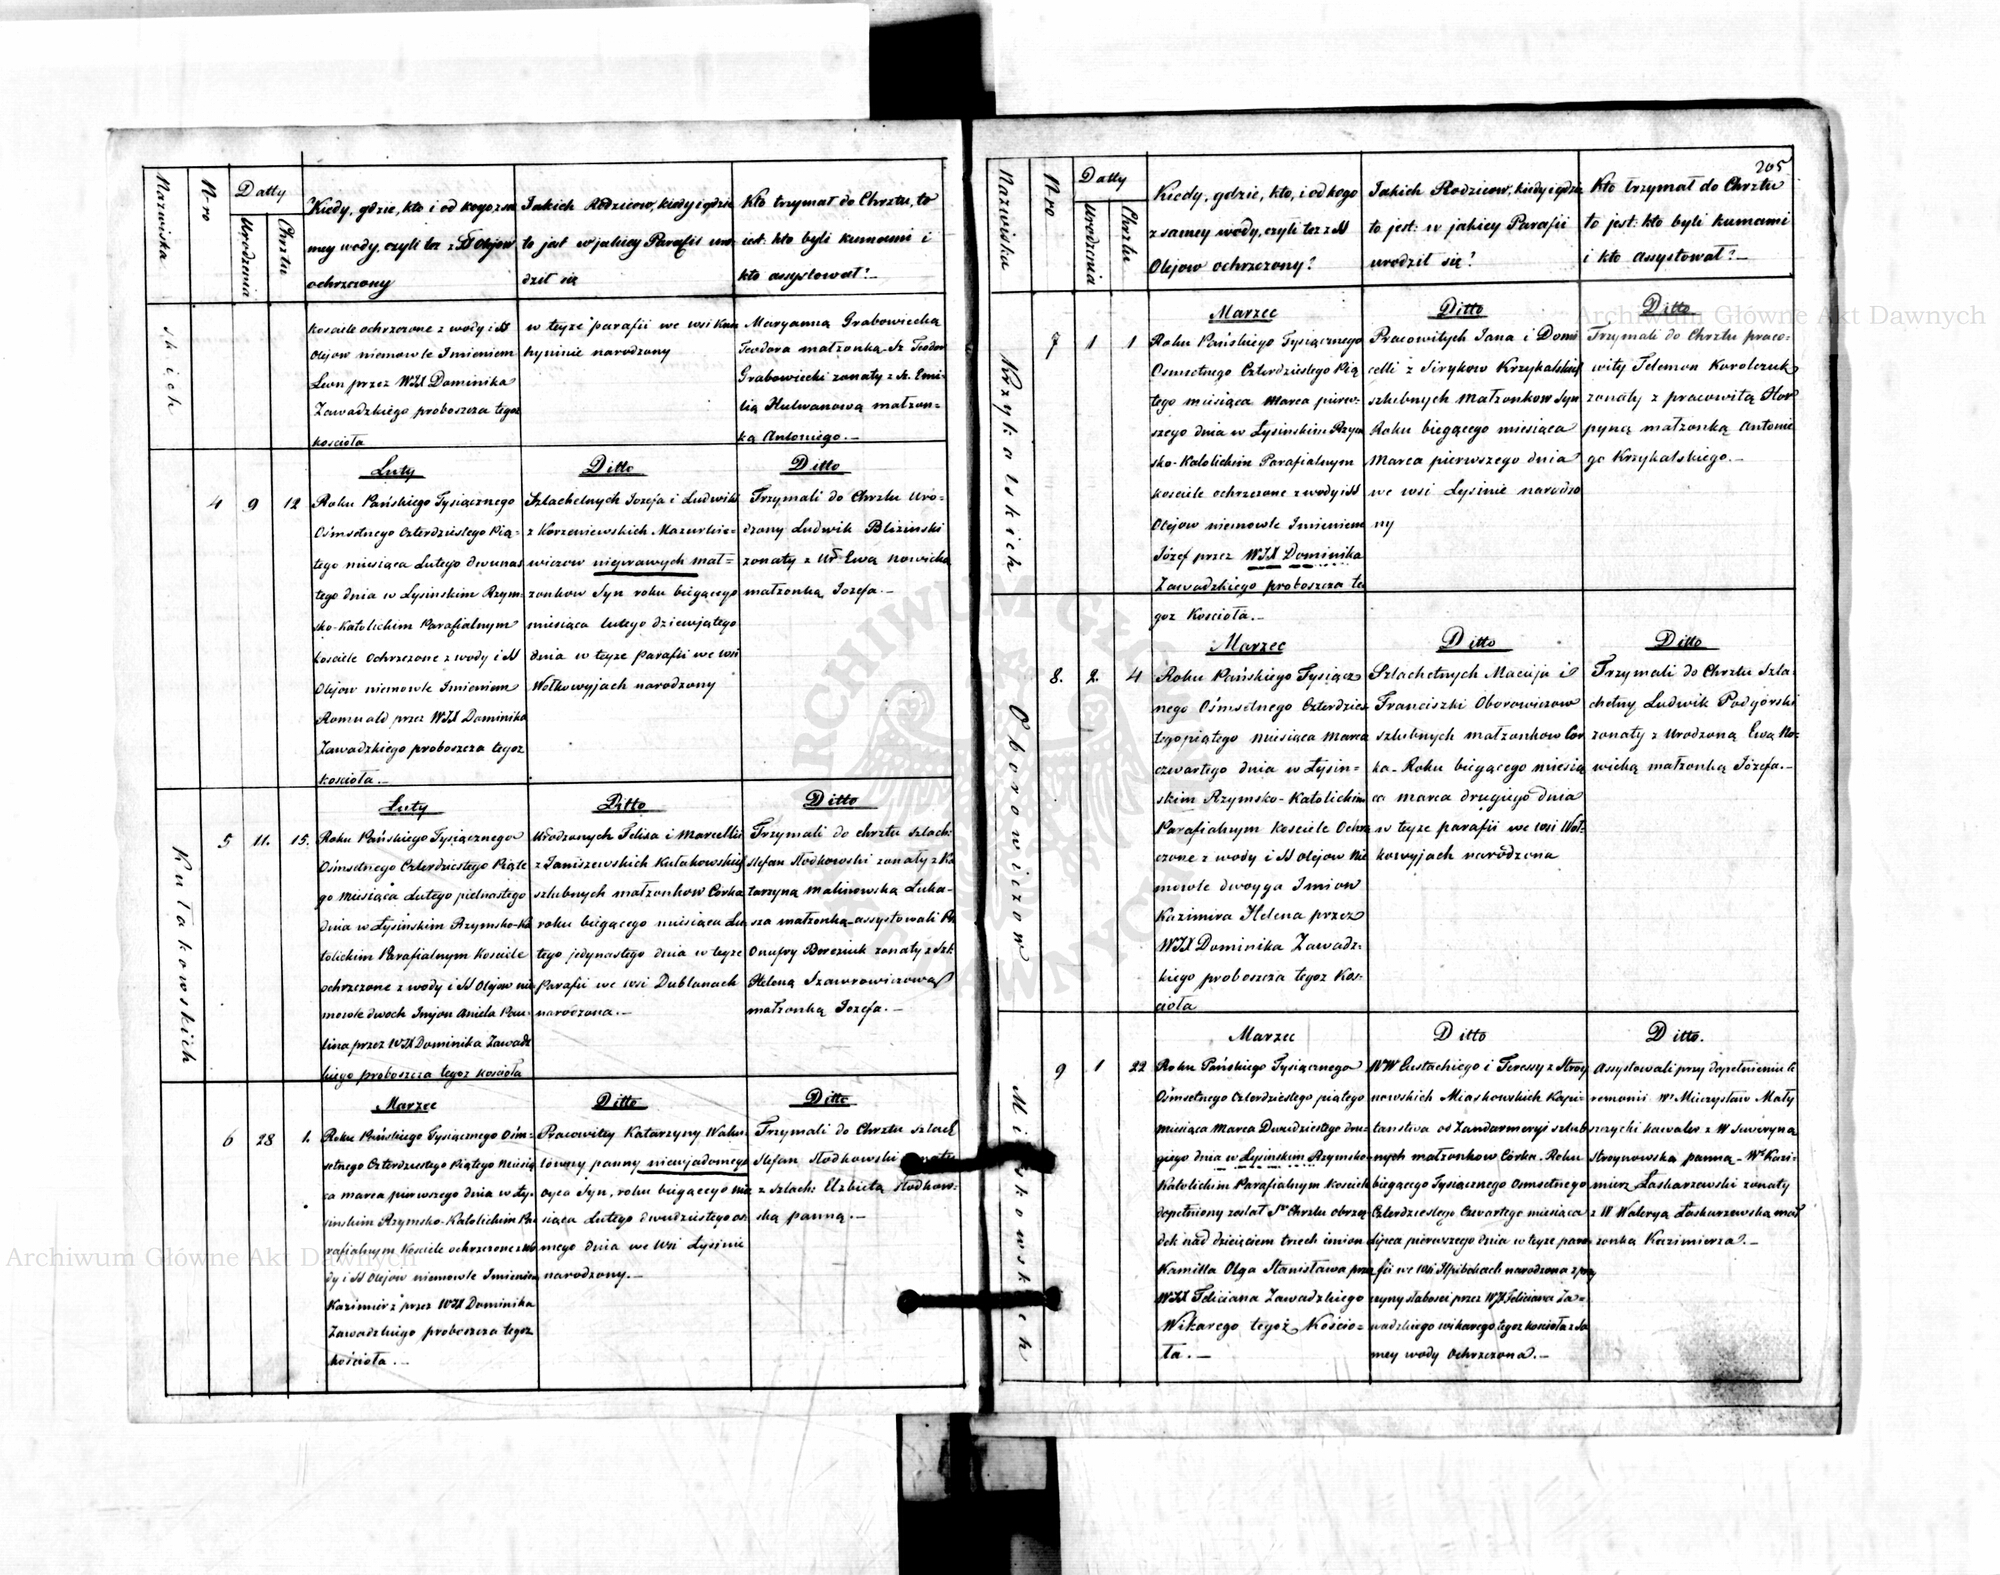 Nazwiska
N-ro
Datty
Urodzenia
Chrztu
Kiedy, gdzie, kto i od kogo z sa
mey wody, czyli też z SS Olejow
ochrzczony
Jakich Rodziców, kiedy i gdzie
to jest w jakiey Parafii uro
dził się
Kto trzymał do Chrztu, to
iest: kto byli kumami i
kto assystował?
skich
kosciele ochrzczone z wody i SS
Olejow niemowle Imieniem
Leon przez WJX Dominika
Zawadzkiego proboszcza tegoż
kosciola
w teyże parafii we wsi
hyninie narodzony
Maryanną Grabowiecką
Teodora małżonką Sz. Teodor
Grabowiecki zonaty z Sz. Emi-
lią Hulwanową małżon-
ką Antoniego.—
4
9
12
Luty
Roku Pańskiego Tysiącznego
Ośmsetnego Czterdziestego Pią-
tego miesiąca Lutego dwunas
tego dnia w Łysinskim Rzym-
sko-Katolickim Parafialnym
kosciele ochrzczone z wody i SS
Olejow niemowle Imieniem
Romuald przez WJX Dominika
Zawadzkiego proboszcza tegoż
kosciola.—
Ditto
Szlachetnych Jozefa i Ludwiki
z Korzeniewskich Mazurkie-
wiczow nieprawych mał-
zonkow Syn roku bieżącego
miesiąca lutego dziewiątego
dnia w teyże parafii we wsi
Wołkowyjach narodzony
Ditto
Trzymali do Chrztu Uro-
dzony Ludwik Blizinski
zonaty z Ur. Ewą Nowicką
małżonką Jozefa.—
Kułakowskich
5
11.
15.
Luty
Roku Pańskiego Tysiącznego
Ośmsetnego Czterdziestego Piąte
go miesiąca Lutego pietnastego
dnia w Łysinskim Rzymsko-Ka
tolickim Parafialnym Kosciele
ochrzczone z wody i SS Olejow nie
mowle dwoch Imjon Aniela Pau-
lina przez WJX Dominika Zawadz
kiego proboszcza tegoż kosciola
Ditto
Urodzonych Felixa i Marcelli
z Janiszewskich Kułakowskich
szlubnych małżonkow Córka
roku bieżącego miesiąca Lu
tego jedynastego dnia w teyże
Parafii we wsi Dublanach
narodzona.—
Ditto
Trzymali do chrztu szlach:
Stefan Słodkowski zonaty z Ka
tarzyną Malinowską Łuka-
sza małżonką assystowali
Onufry Bereziuk zonaty z Szl.
Heleną Szawrowiczową
małżonką Jozefa.—
6
28
1.
Marzec
Roku Pańskiego Tysiącznego Ośm-
setnego Czterdziestego Piątego miesią
ca marca pierwszego dnia w Ły-
sinskim Rzymsko-Katolickim Pa
rafialnym Kosciele ochrzczone z wo
dy i SS Olejow niemowle Imieniem
Kazimierz przez WJX Dominika
Zawadzkiego proboszcza tegoż
kościoła.—
Ditto
Pracowitey Katarzyny
łowny panny niewiadomego
oyca Syn, roku bieżącego mie
siąca Lutego dwudziestego os
mego dnia we wsi Łysinie
narodzony.—
Ditto
Trzymali do Chrztu szlach
Stefan Słodkowski zonaty
z szlach: Elzbietą Słodkow-
ską panną.—
205
Nazwiska
N-ro
Datty
Urodzenia
Chrztu
Kiedy, gdzie, kto, i od kogo
z samey wody, czyli też z SS
Olejow ochrzczony?
Jakich Rodzicow, kiedy i gdzie
to jest: w jakiey Parafii
urodził się?
Kto trzymał do Chrztu
to jest: kto byli kumami
i kto assystował?—
Krzykalskich
7
1
1
Marzec
Roku Pańskiego Tysiącznego
Osmsetnego Czterdziestego Pią
tego miesiąca Marca pierw-
szego dnia w Łysinskim Rzym
sko-Katolickim Parafialnym
kosciele ochrzczone z wody i SS
Olejow niemowle Imieniem
Józef przez WJX Dominika
Zawadzkiego proboszcza te
goż Kościoła.—
Ditto
Pracowitych Jana i Domi
celli z Sirykow Krzykalskich
szlubnych małżonkow Syn
Roku bieżącego miesiąca
Marca pierwszego dnia
we wsi Łysinie narodzo
ny
Ditto
Trzymali do Chrztu praco-
wity Telemon Korolczuk
zonaty z pracowitą Hor
pyną małżonką Antonie
go Krzykalskiego.—
Oborowiczow
8.
2.
4
Marzec
Roku Pańskiego Tysiącz
nego Ośmsetnego Czterdzies
tego piątego miesiąca Marca
czwartego dnia w Łysin-
skim Rzymsko-Katolickim
Parafialnym Kosciele Ochrz
czone z wody i SS Olejow nie
mowle dwoyga Imion
Kazimira Helena przez
WJX Dominika Zawadz-
kiego proboszcza tegoż Koś-
cioła
Ditto
Szlachetnych Macieja i
Franciszki Oborowiczow
szlubnych małżonkow Cor
ka-Roku bieżącego miesią
ca marca drugiego dnia
w teyże parafii we wsi Woł-
kowyjach narodzona
Ditto
Trzymali do Chrztu Szla-
chetny Ludwik Podgórski
zonaty z Urodzoną Ewą No-
wicką małżonką Józefa.—
Miaskowskich
9
1
22
Marzec
Roku Pańskiego Tysiącznego
Ośmsetnego Czterdziestego piątego
miesiąca Marca Dwudziestego dru-
giego dnia w Łysinskim Rzymsko-
Katolickim Parafialnym Kosciele
dopełniony został St Chrztu obrzą
dek nad dziecięciem trzech imion
Kamilla Olga Stanisława przez
WJX Feliciana Zawadzkiego
Wikarego tegoż Kościo-
ła.—
Ditto
WW Eustachiego i Teressy z Stroy
nowskich Miaskowskich Kapi-
tanstwa od Zandarmeryi szlub
nych małżonkow Córka-Roku
bieżącego Tysiącznego Osmsetnego
Czterdziestego Czwartego miesiąca
Lipca pierwszego dnia w teyże para
fii we wsi Hpibokach narodzona z przy
czyny słabosci przez WJX Feliciana Za-
wadzkiego wikarego tegoż kosciola z sa
mey wody ochrzczona.—
Ditto.
Assystowali przy dopełnieniu ce
remonii Wy Mieczysław Mały
szczycki kawaler z W Seweryną
Stroynowską panną- Wy Kazi-
mierz Łaskarzewski zonaty
z W Waleryą Łaskarzewską mał
zonką Kazimierza.—
Archiwum Główne Akt Dawnych
Archiwum Główne Akt Dawnych
ARCHIWUM GŁÓWNE
AKT DAWNYCH